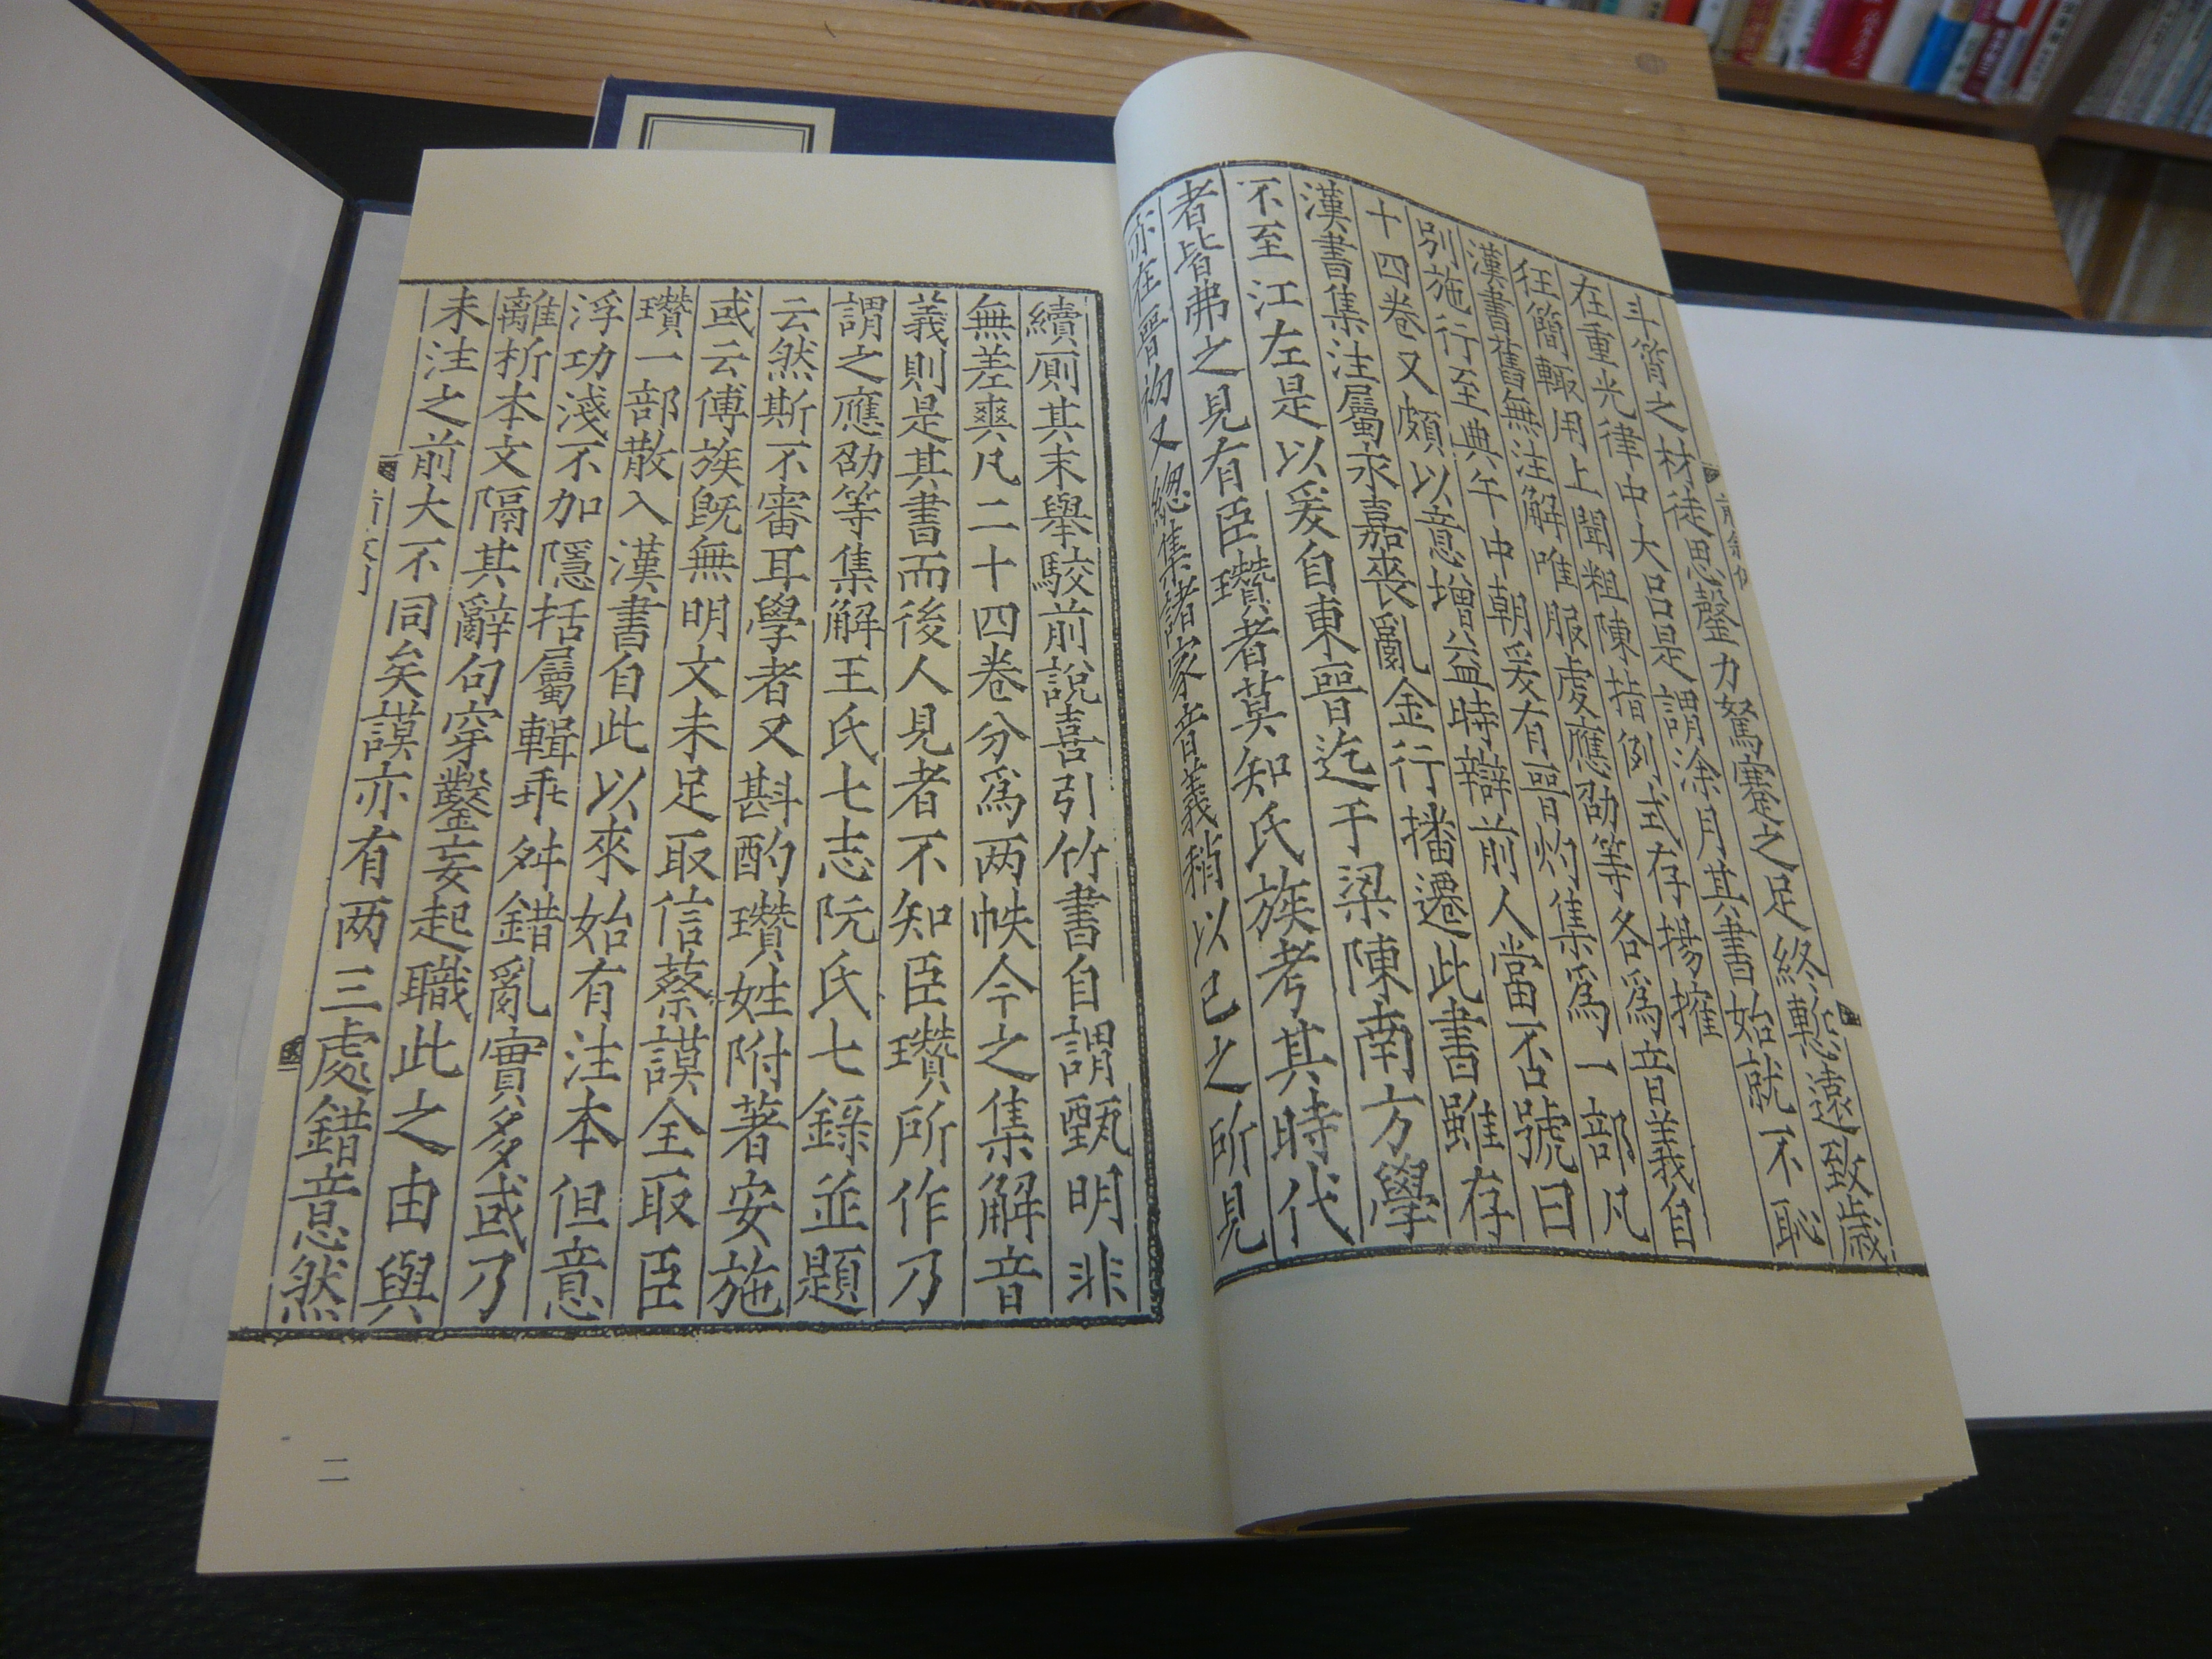 斗筲之材徒思罄力駑蹇之足終慙遠致歲
在重光律中大呂是謂涂月其書始就不恥
狂簡輙用上聞粗陳指例式存揚搉
漢書舊無注解唯服虔應劭等各爲音義自
別施行至典午中朝爰有晉灼集爲一部凡
十四卷又頗以意增益時辯前人當否號曰
漢書集注屬永嘉喪亂金行播遷此書雖存
不至江左是以爰自東晉迄于梁陳南方學
者皆弗之見有臣瓚者莫知氏族考其時代
亦在晉初又緫集諸家音義稍以己之所見
續厠其末舉駮前說喜引竹書自謂甄明非
無差爽凡二十四卷分爲两帙今之集解音
義則是其書而後人見者不知臣瓚所作乃
謂之應劭等集解王氏七志阮氏七錄並題
云然斯不審耳學者又斟酌瓚姓附著安施
或云傅族旣無明文未足取信蔡謨全取臣
瓚一部散入漢書自此以來始有注本但意
浮功淺不加隱括屬輯乖舛錯亂實多或乃
離析本文隔其辭句穿鑿妄起職此之由與
未注之前大不同矣謨亦有两三處錯意然
二